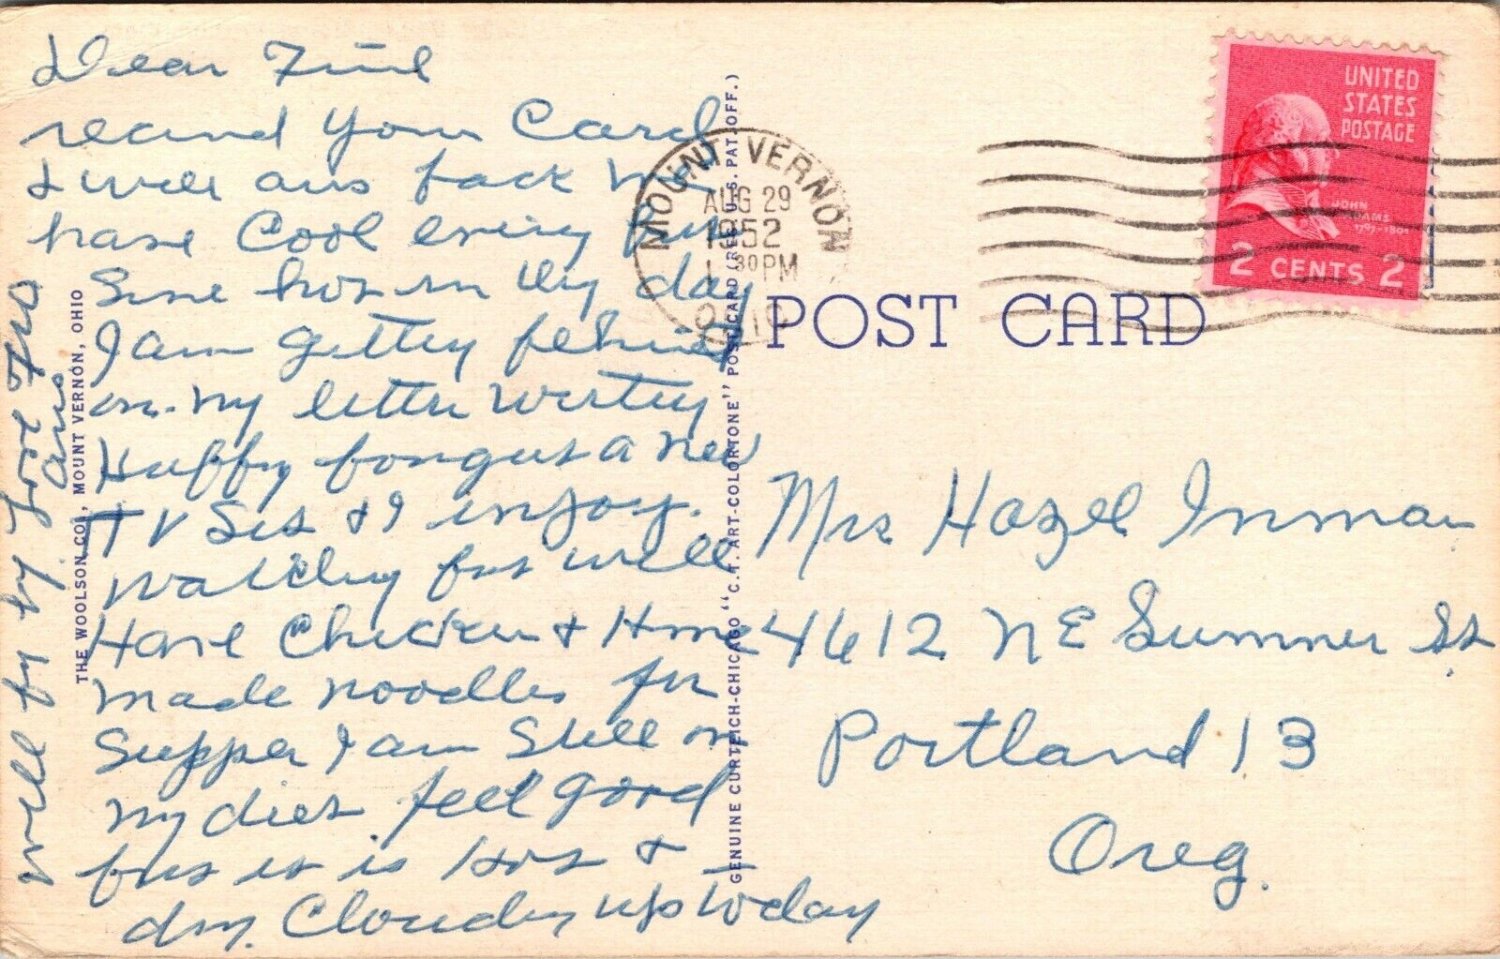 Dear
recived your Card
I will ans back We
have Cool evening but
Some hot in the day
I am getting behind
on my letter writing
Huffy
TV Sis & I injoy
watching but will
Have Chicken & Home
made noodles for
Supper I am Still on
my diet feel good
but it is Hot &
dry. Cloudy up today
well by by Love
ans
THE WOOLSON CO., MOUNT VERNON, OHIO
GENUINE CURTEICH-CHICAGO "C.T. ART-COLORTONE" POST CARD (REG. U.S. PAT. OFF.)
MOUNT VERNON
AUG 29
1952
1 30 PM
OHIO
UNITED
STATES
POSTAGE
JOHN
ADAMS
1797-1801
2 CENTS 2
POST CARD
Mrs Hazel Inman
4612 NE Sumner St
Portland 13
Oreg.